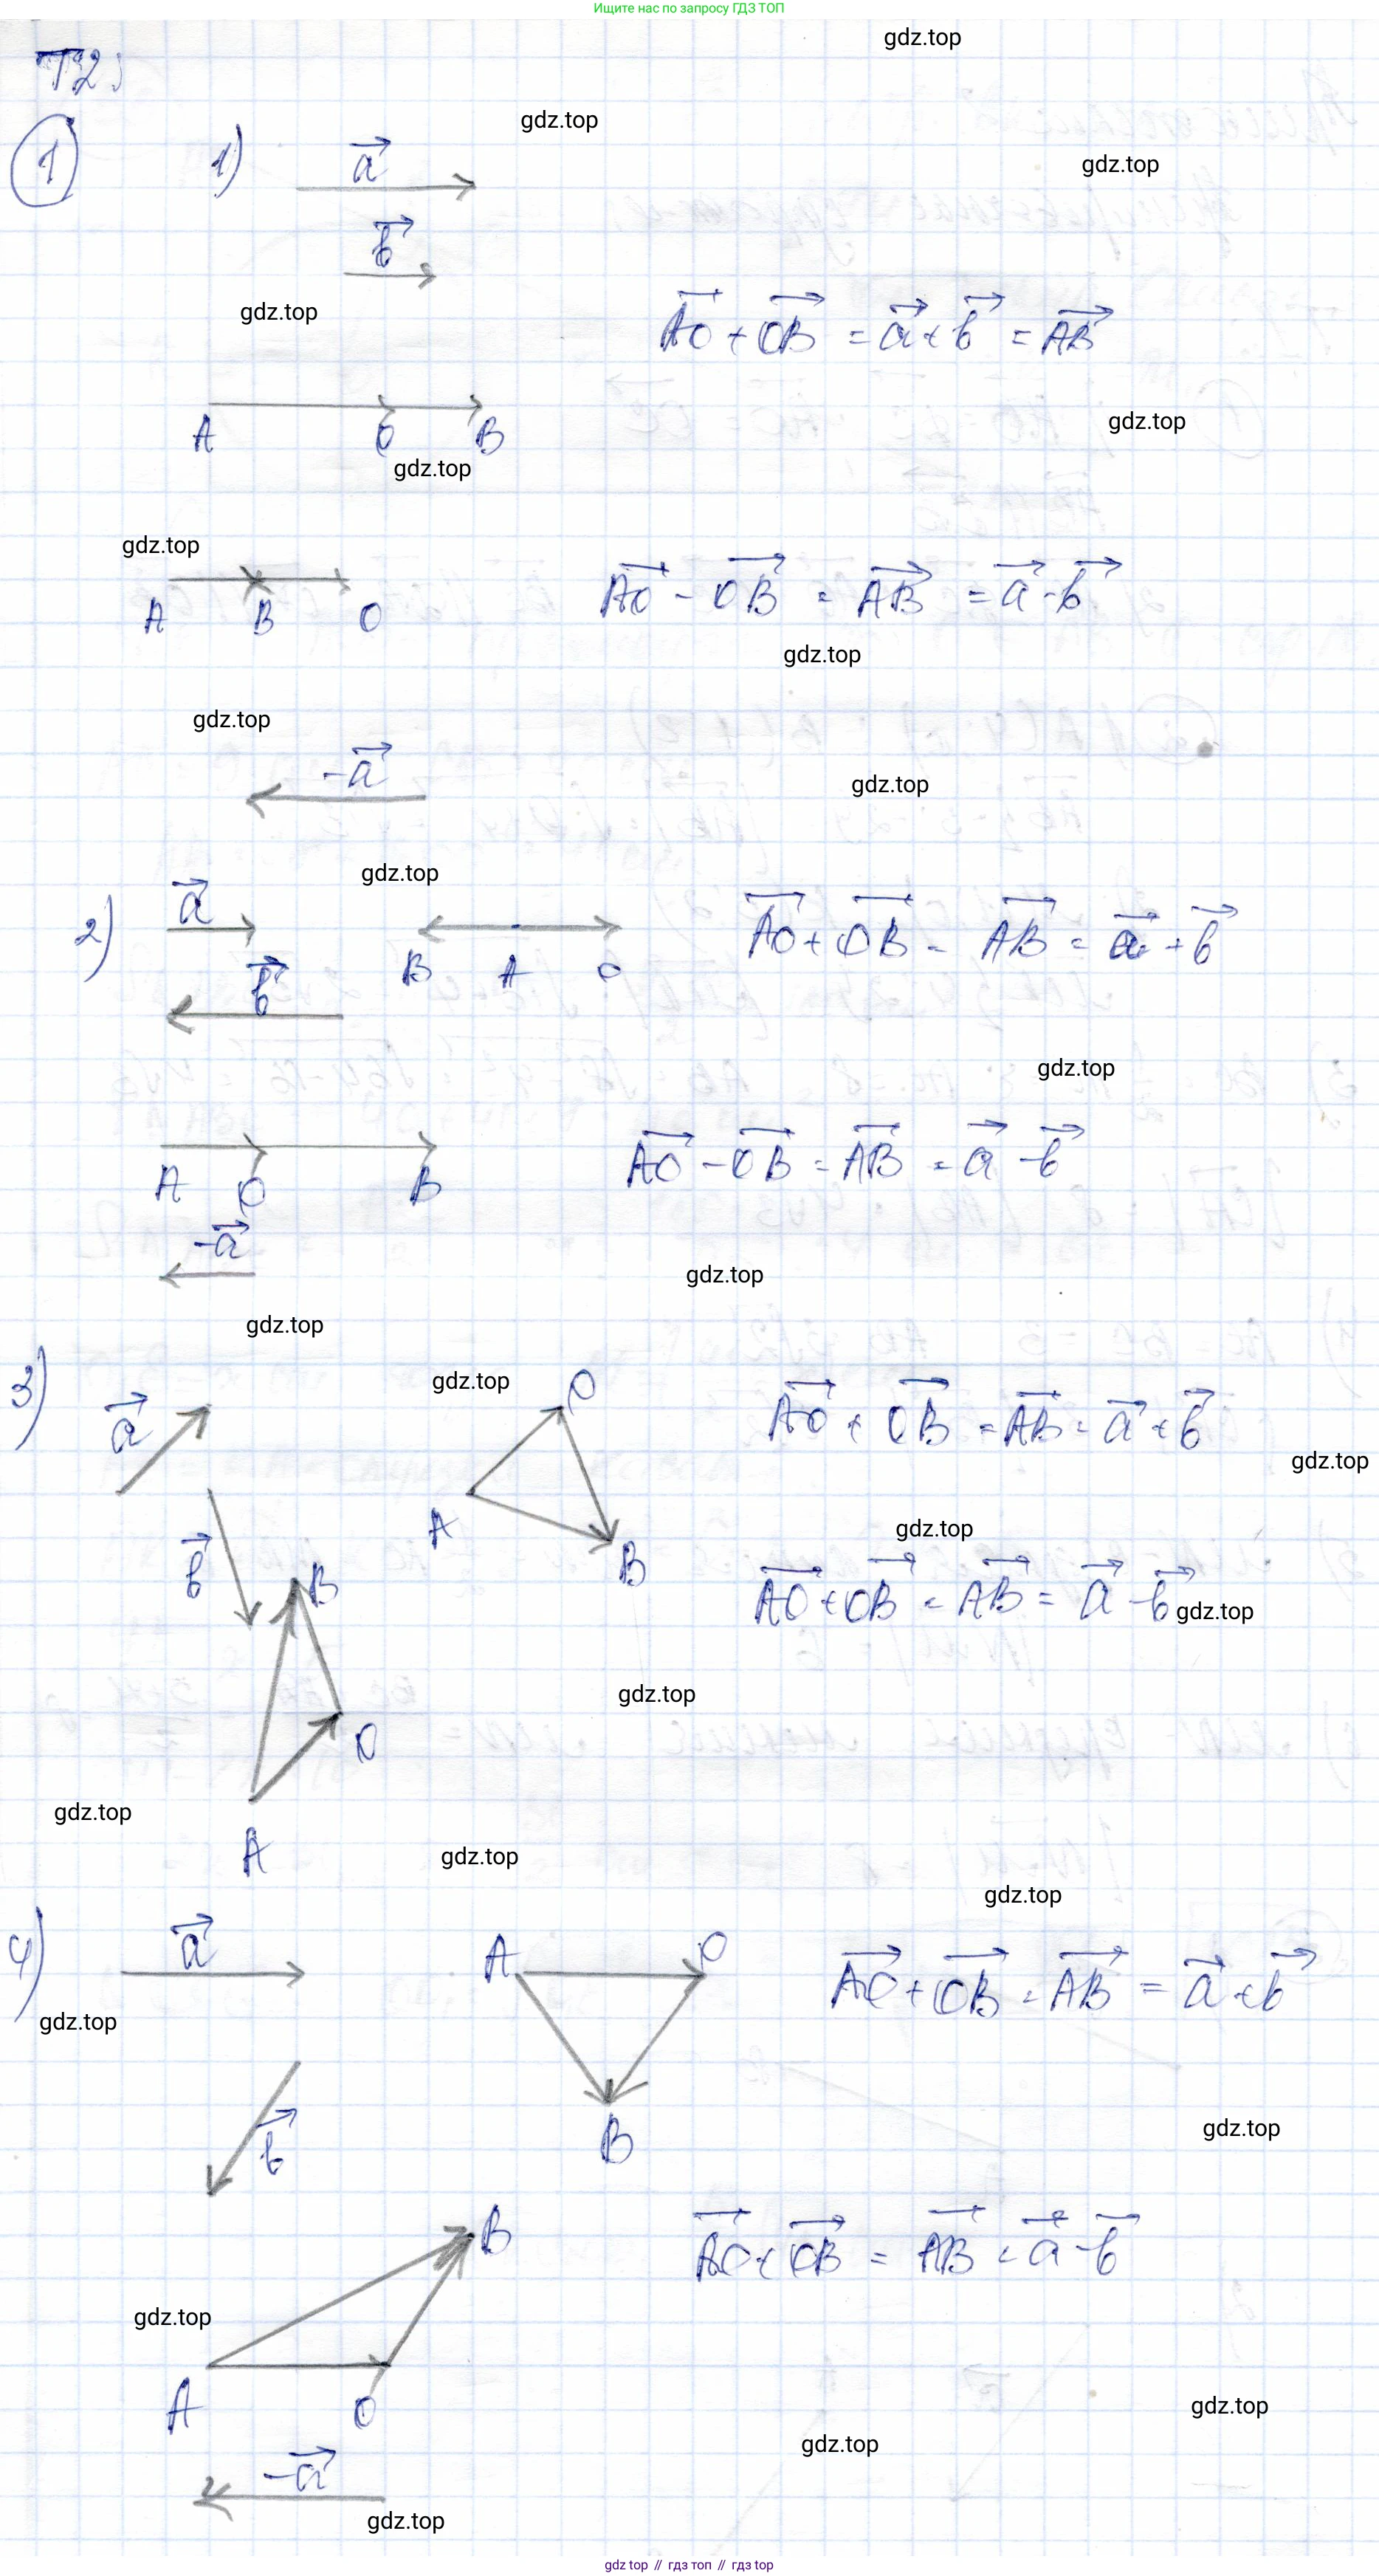 Ищите нас по запросу ГДЗ ТОП
gdz.top
T2.
gdz.top
1 1) a⃗
gdz.top
b⃗
gdz.top
AO⃗ + OB⃗ = a⃗ + b⃗ = AB⃗
A O B
gdz.top
gdz.top
gdz.top
AO⃗ - OB⃗ = AB⃗ = a⃗ - b⃗
A B O
gdz.top
gdz.top
-a⃗
gdz.top
gdz.top
2) a⃗
b⃗
B A O
AO⃗ + OB⃗ = AB⃗ = a⃗ + b⃗
gdz.top
AO⃗ - OB⃗ = AB⃗ = a⃗ - b⃗
A O B
-a⃗
gdz.top
gdz.top
3) a⃗
gdz.top
O
AO⃗ + OB⃗ = AB⃗ = a⃗ + b⃗
gdz.top
A
B
gdz.top
b⃗
B
AO⃗ + OB⃗ = AB⃗ = a⃗ - b⃗
gdz.top
gdz.top
O
gdz.top
A
gdz.top
gdz.top
4) a⃗
A O
AO⃗ + OB⃗ = AB⃗ = a⃗ + b⃗
gdz.top
b⃗
B
gdz.top
B
AO⃗ + OB⃗ = AB⃗ = a⃗ - b⃗
gdz.top
A O
gdz.top
gdz.top
-a⃗
gdz.top
gdz top // гдз топ // gdz top